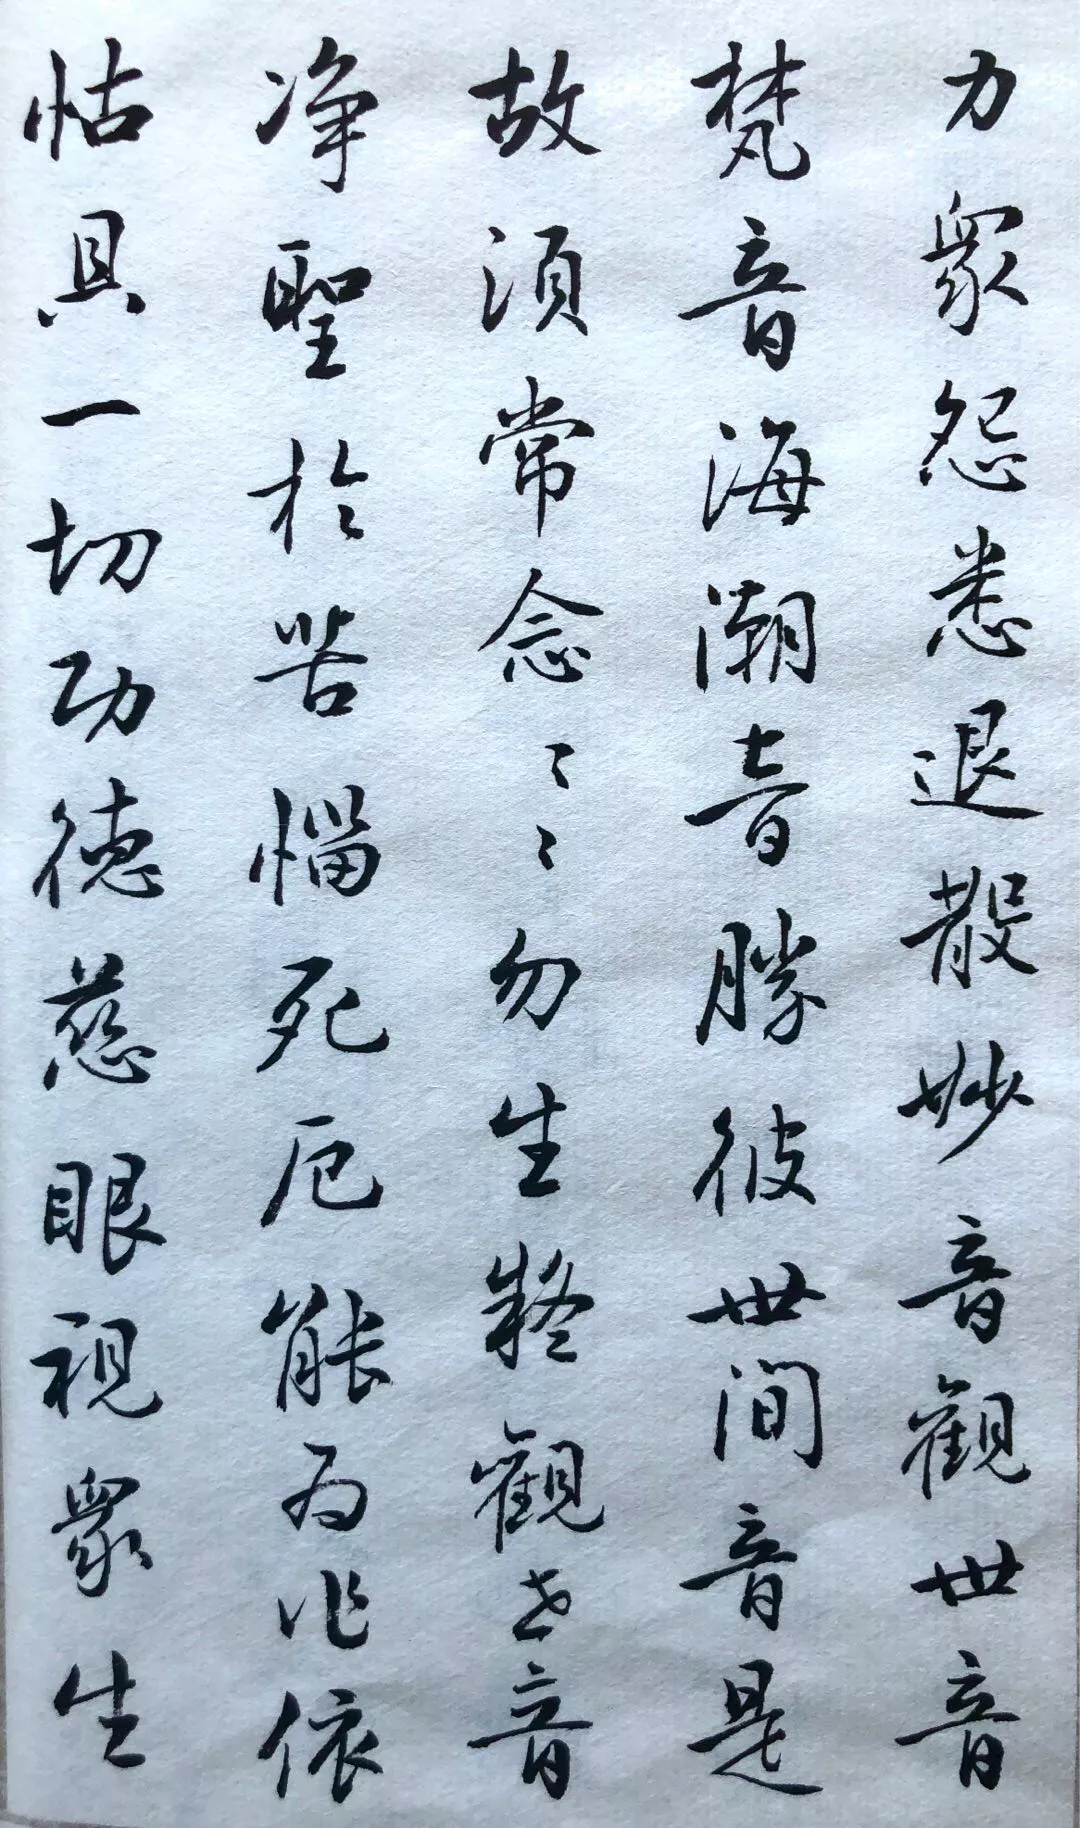 力眾怨悉退散妙音觀世音
梵音海潮音勝彼世間音是
故須常念〻〻勿生疑觀世音
净聖於苦惱死厄能为作依
怙具一切功德慈眼視眾生